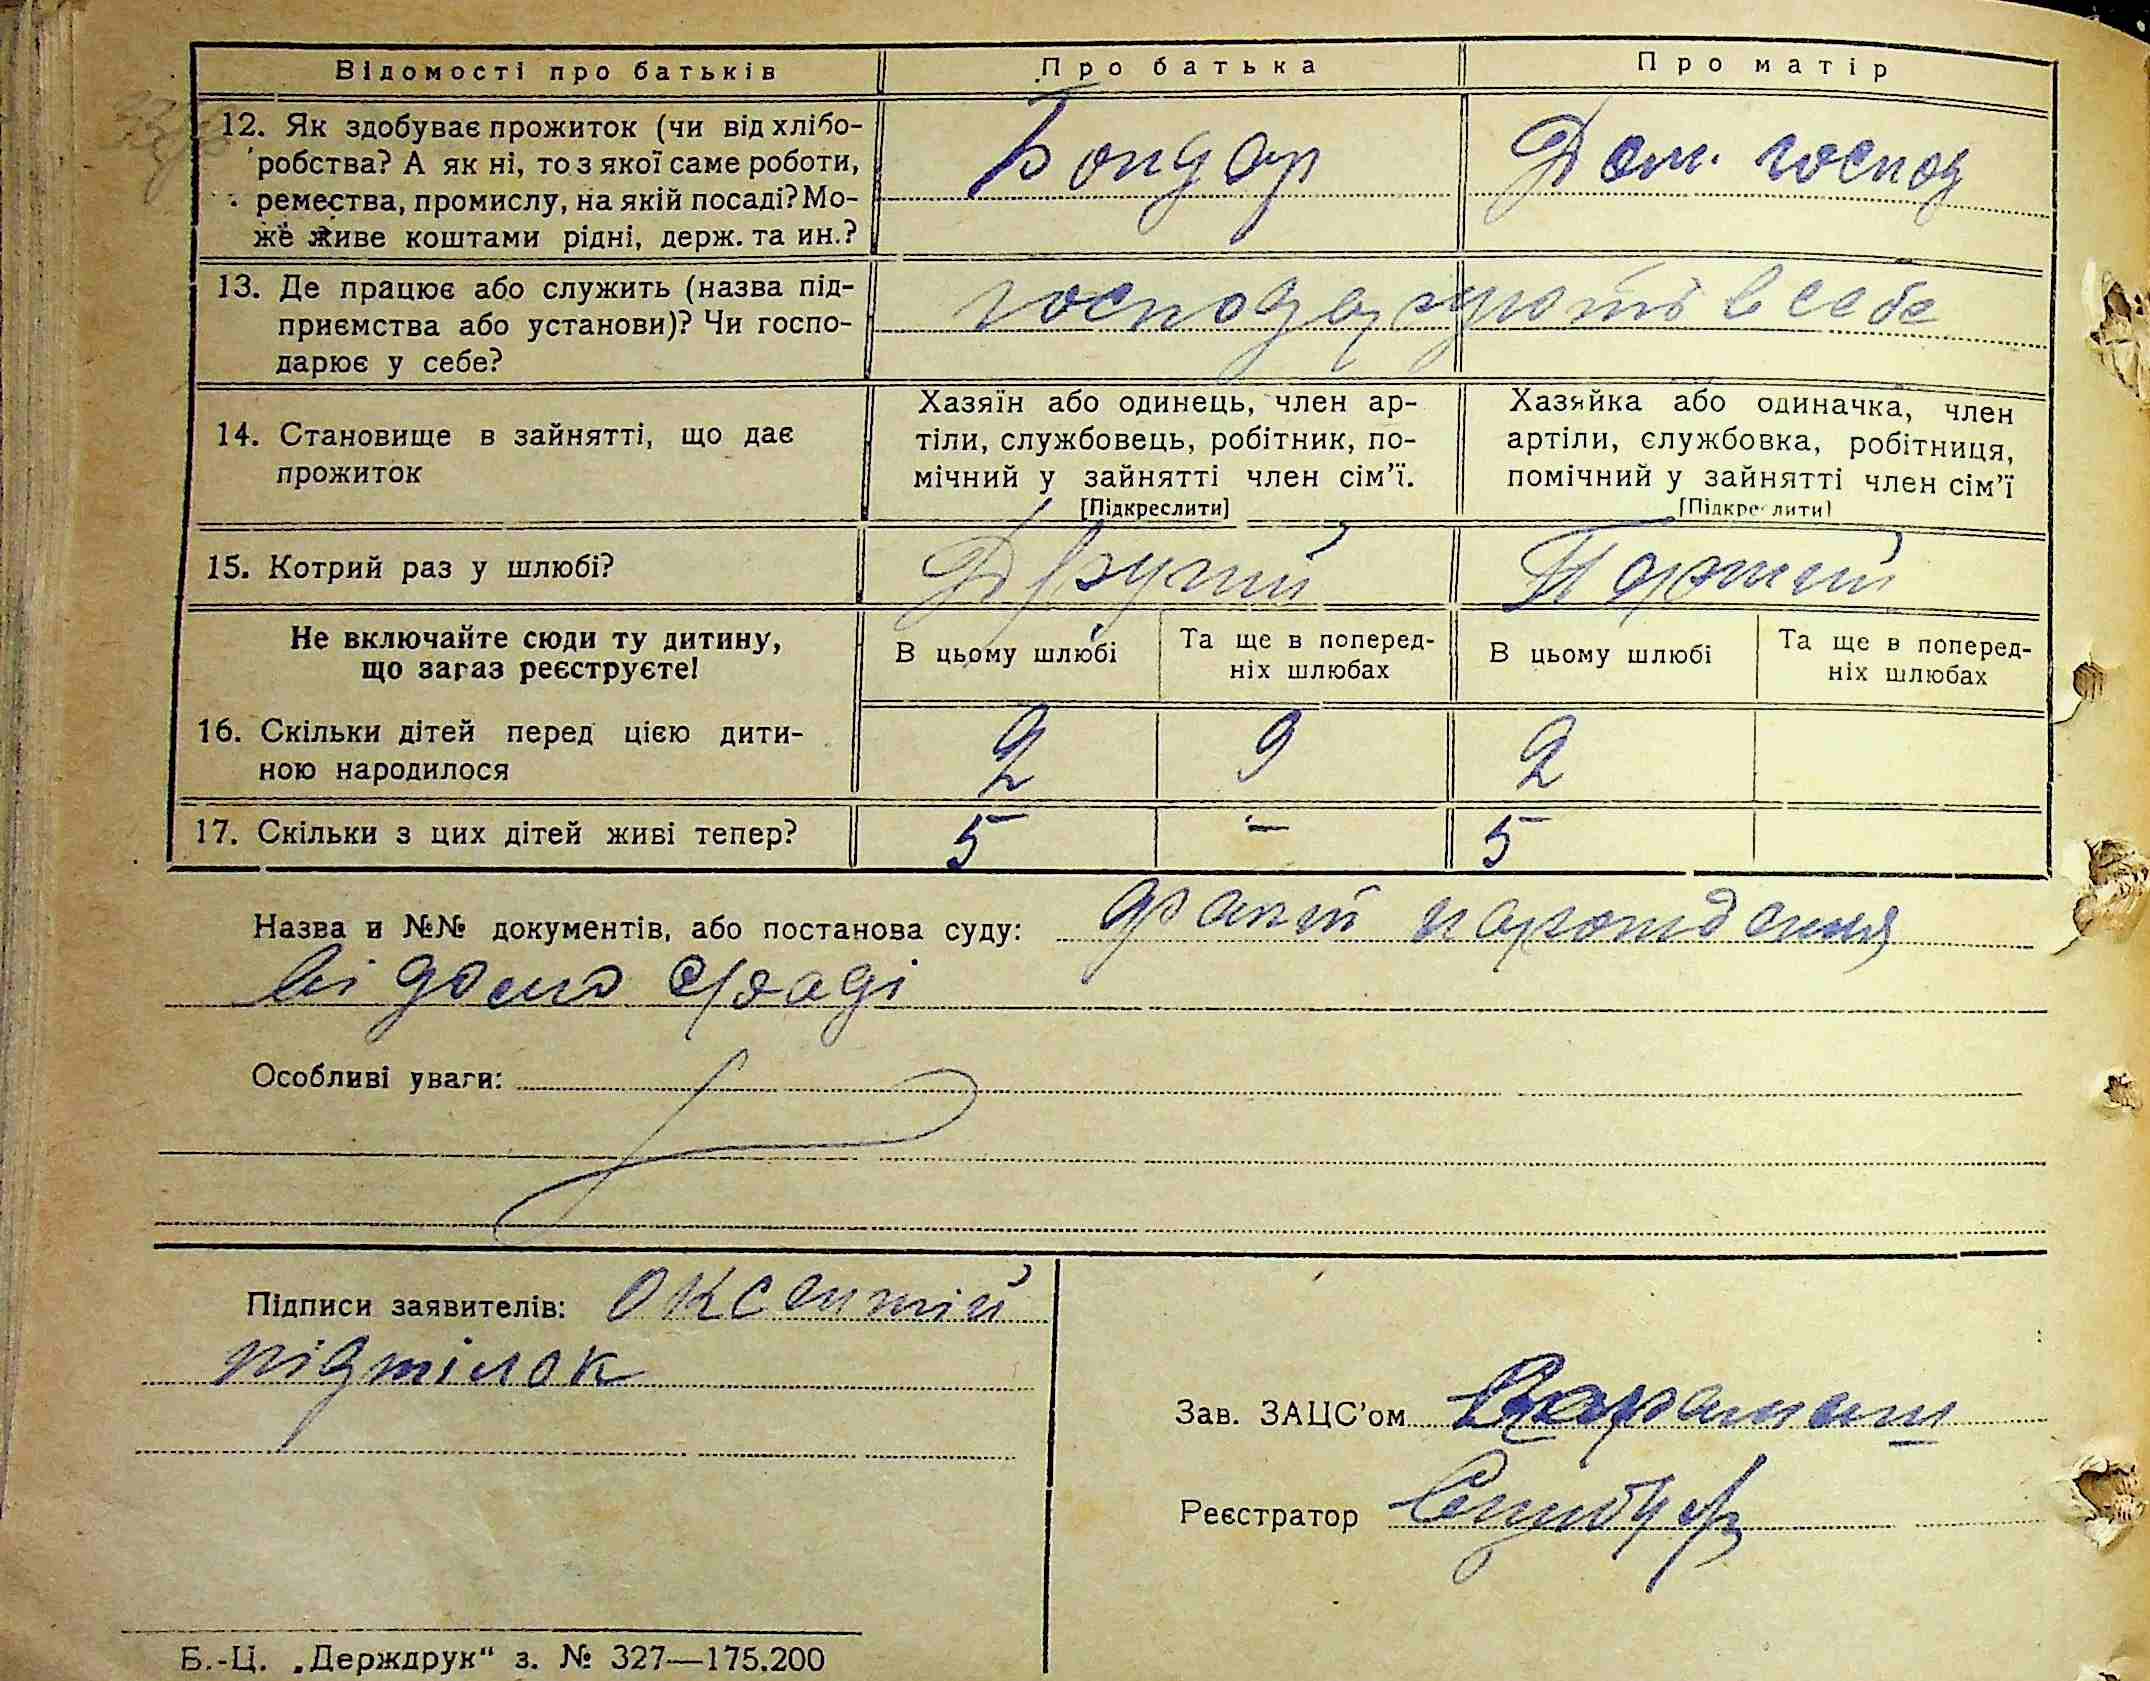 Відомості про батьків Про батька Про матір
12. Як здобуває прожиток (чи від хлібо-
робства? А як ні, то з якої саме роботи,
ремества, промислу, на якій посаді? Мо-
же живе коштами рідні, держ. та ин.?
Бондар Дом. господ
13. Де працює або служить (назва під-
приємства або установи)? Чи госпо-
дарює у себе?
господарують в себе
14. Становище в зайнятті, що дає
прожиток
Хазяїн або одинець, член ар-
тіли, службовець, робітник, по-
мічний у зайнятті член сім'ї.
[Підкреслити]
Хазяйка або одиначка, член
артіли, службовка, робітниця,
помічний у зайнятті член сім'ї
[Підкреслити]
15. Котрий раз у шлюбі? Другий Перший
Не включайте сюди ту дитину,
що зараз реєструєте!
В цьому шлюбі Та ще в поперед-
ніх шлюбах
В цьому шлюбі Та ще в поперед-
ніх шлюбах
16. Скільки дітей перед цією дити-
ною народилося
2 9 2
17. Скільки з цих дітей живі тепер? 5 – 5
Назва и №№ документів, або постанова суду: факт нарождення
відомо сраді
Особливі уваги:
Підписи заявителів: Оксентій
підтілок
Зав. ЗАЦС'ом
Реєстратор
Б.-Ц. „Держдрук“ з. № 327—175.200